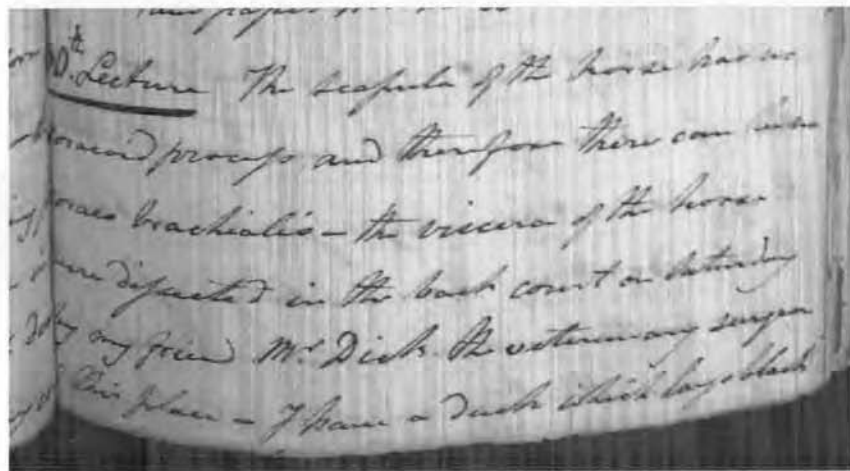 Lecture The scapula of the horse has no
Coracoid process and therefore there can be no
Coraco brachialis – the viscera of the horse
were dissected in the back court on Saturday
by my friend Mr Dick the veterinary surgeon
of this place – I have a duck which lays black